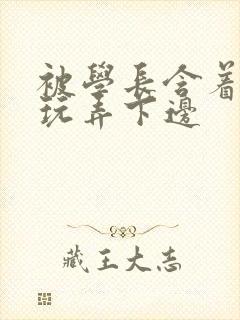 被學長含着
玩弄下邊
藏王大志